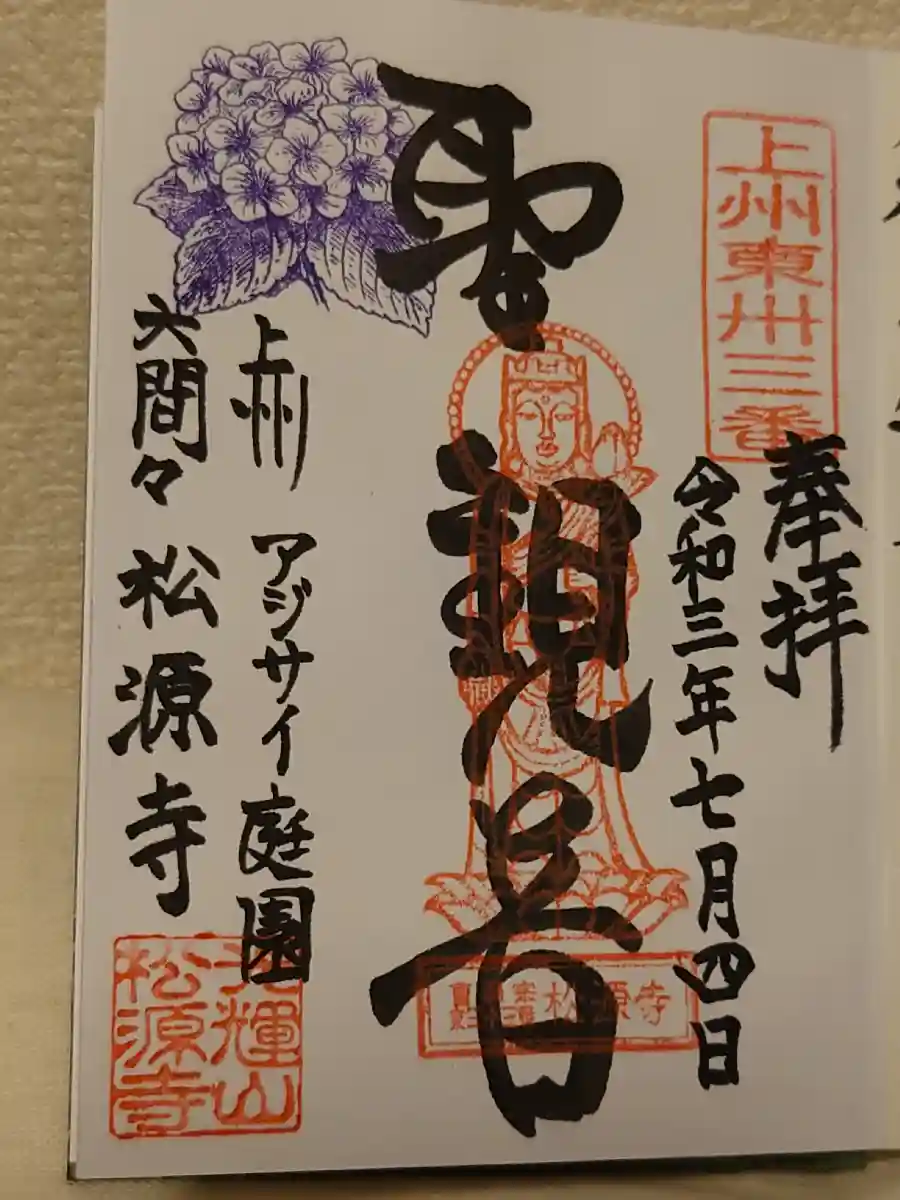 上州東卅三番
奉拝
令和三年七月四日
聖観音
松源寺
上州 アジサイ庭園
大間々 松源寺
輝山
松源寺